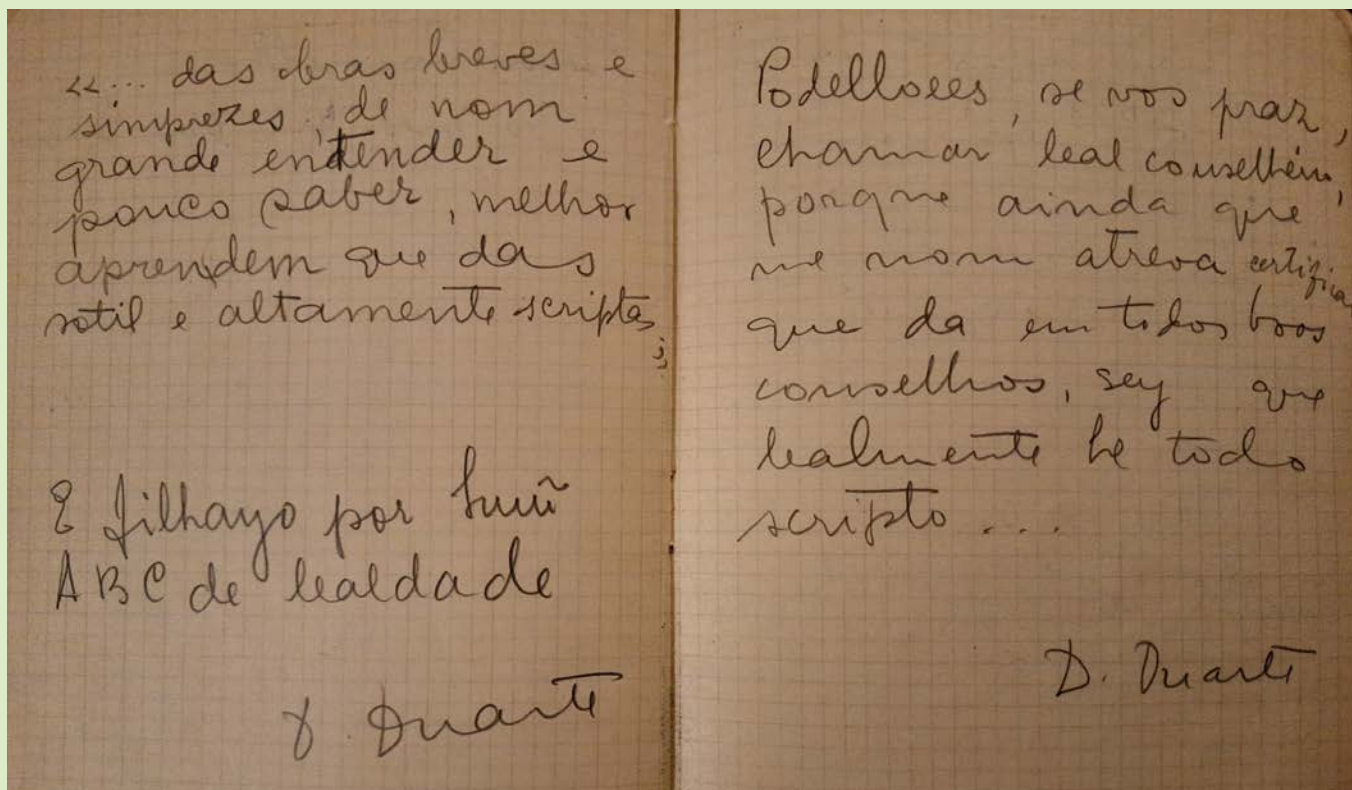 «... das obras breves e
simprezes, de nom
grande entender e
pouco saber, melhor
aprendem que das
sotil e altamente scriptas;
E filhayo por huũ
A B C de lealdade
D. Duarte
Podelloees, se vos praz,
chamar leal conselheiro,
porque ainda que
me nom atreva certificar
que da em todos boos
conselhos, sey que
lealmente he todo
scripto...
D. Duarte